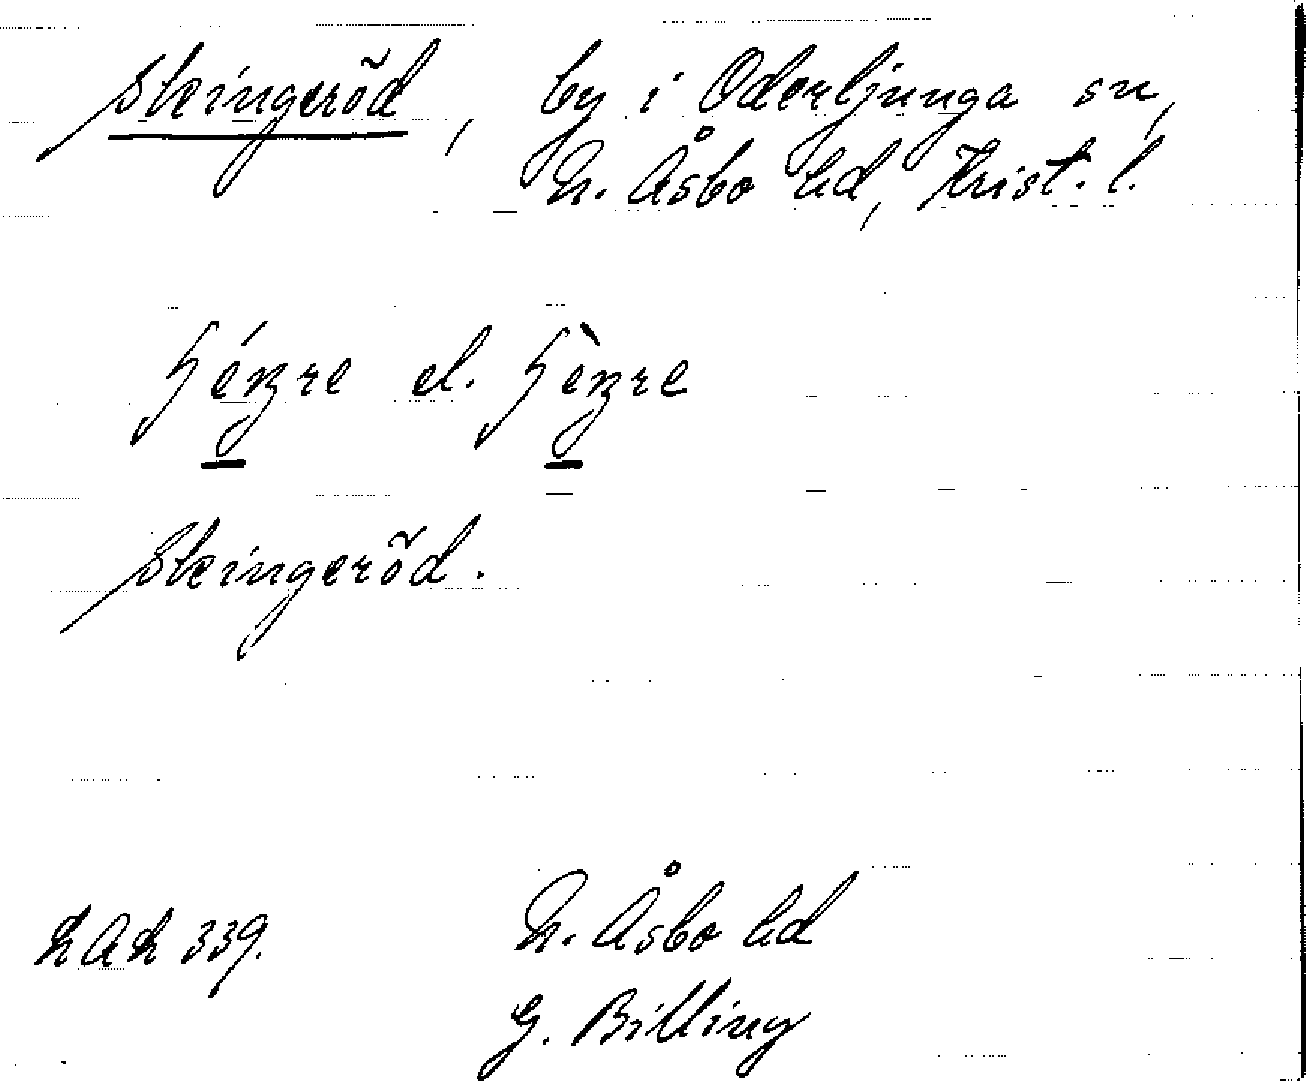 Skeingeröd, by i Oderljunga sn,
N. Åsbo hd, Krist. l.
el.
Skeingeröd.
LAL 339.
N. Åsbo hd
G. Billing